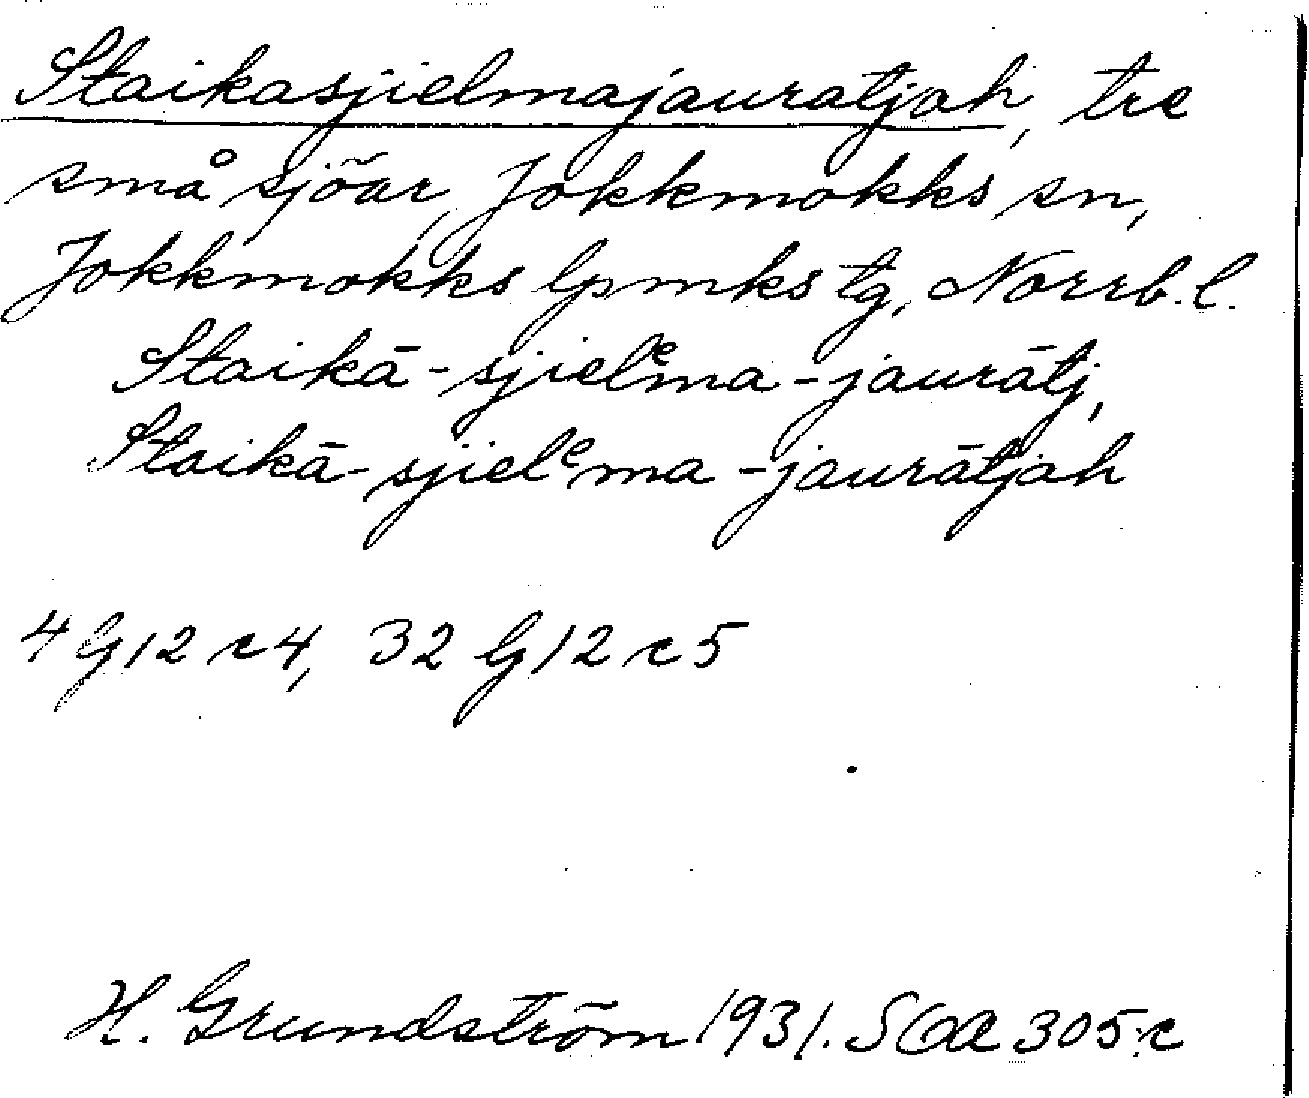 Staikasjielmajauratjah, tre
små sjöar, Jokkmokks sn,
Jokkmokks lpmks tg, Norrb. l.
Staikā-sjielᵉma-jaurātj,
Staikā-sjielᵉma-jaurātjah
4 G 12 c 4, 32 G 12 c 5
H. Grundström 1931. SOA 305:c